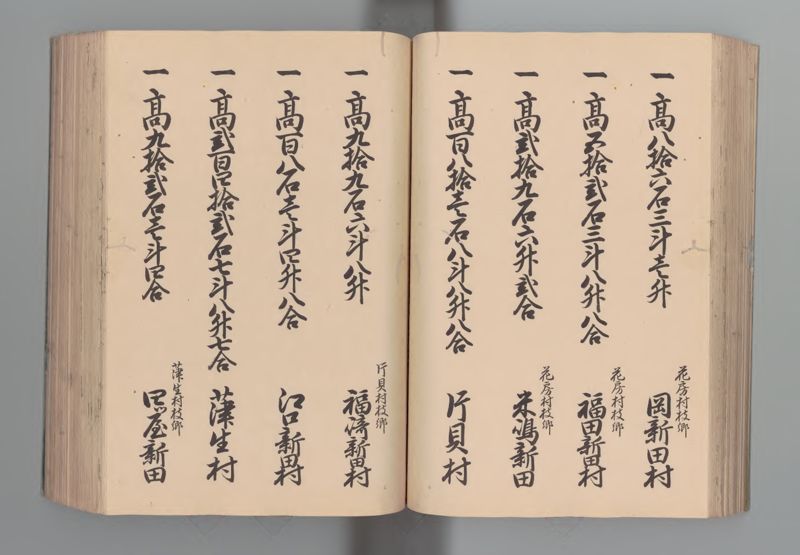 一 高八拾六石三斗壱升
花房村枝郷
岡新田村
一 高五拾弐石三斗八升八合
花房村枝郷
福田新田村
一 高弐拾九石六升弐合
花房村枝郷
米嶋新田
一 高百八拾壱石八斗八升八合
片貝村
一 高九拾九石六斗八升
片貝村枝郷
福崎新田村
一 高百八石壱斗四升八合
江口新田村
一 高弐百四拾弐石七斗八升七合
蓮生村
一 高九拾弐石壱斗四合
蓮生村枝郷
四ツ屋新田